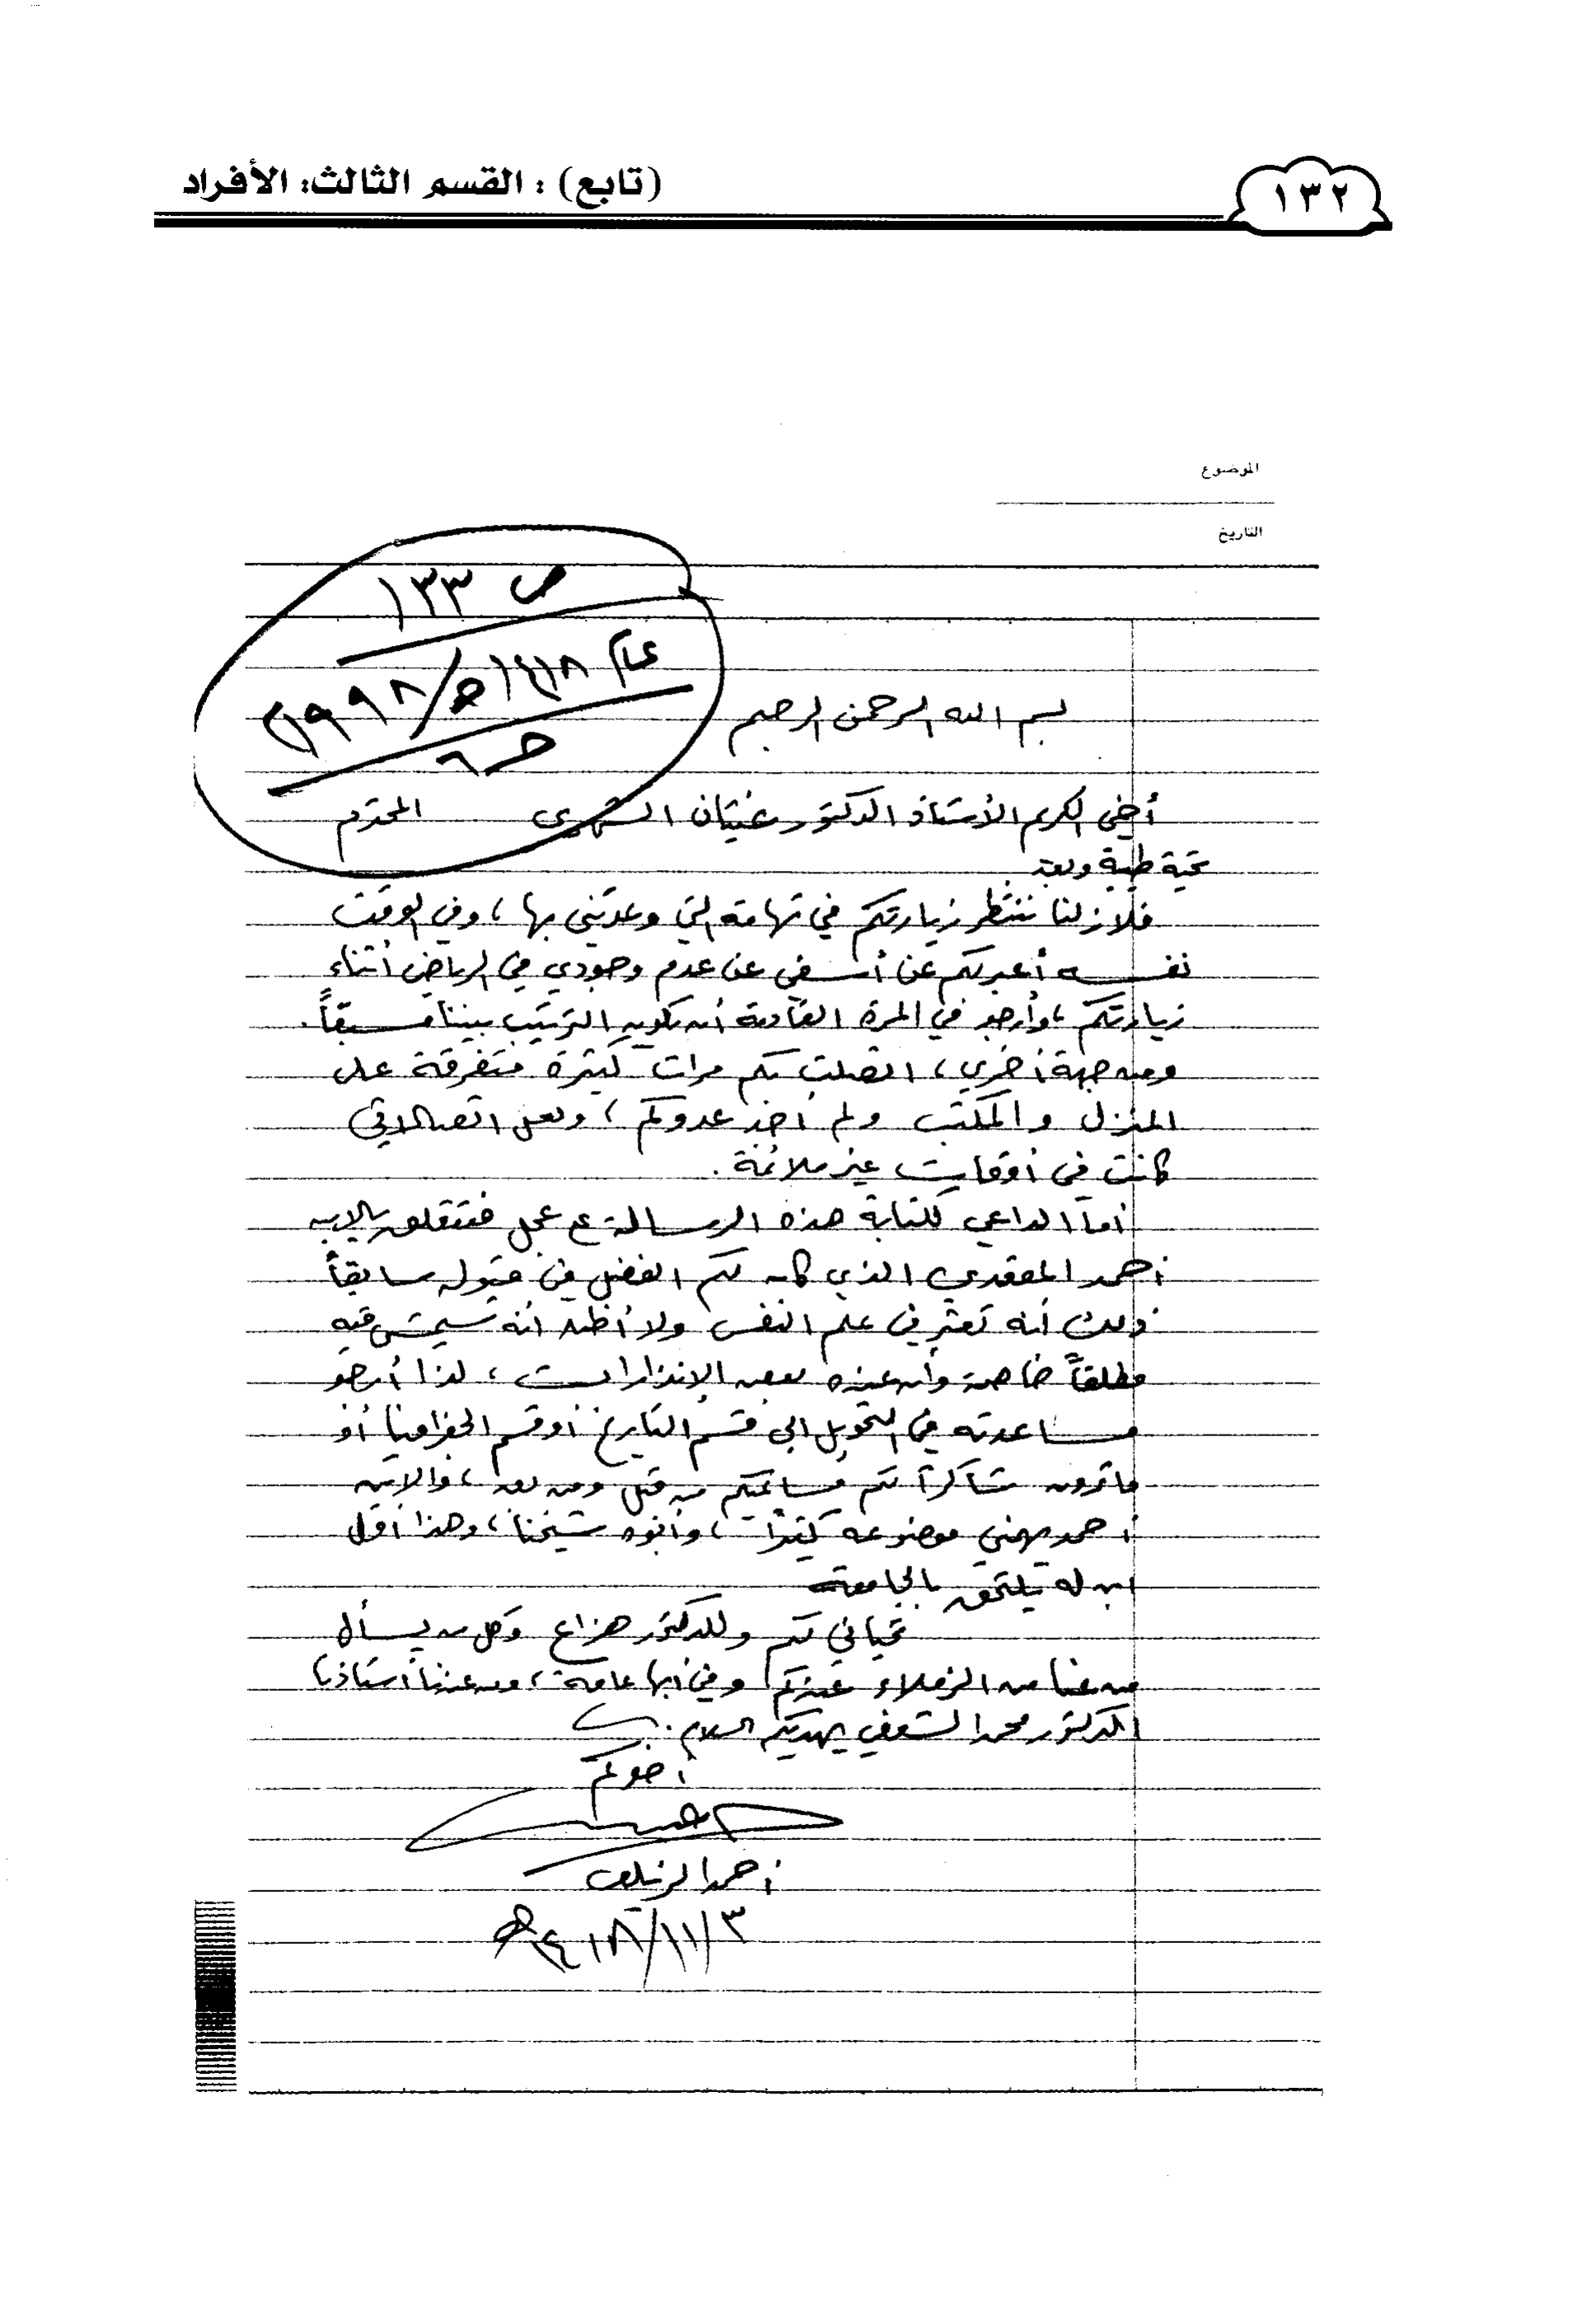 ١٣٢
(تابع) : القسم الثالث: الأفراد
الموضوع
التاريخ
ص ١٣٣
عام ١٤١٨هـ/١٩٩٨م
بسم الله الرحمن الرحيم
أخي الكريم الأستاذ الدكتور غيثان الشهري المحترم
تحية طيبة وبعد
فلازلنا ننتظر زيارتكم في تهامة التي وعدتني بها، وفي الوقت
نفسه أعبر لكم عن أسفي عن عدم وجودي في الرياض أثناء
زيارتكم، وأرجو في المرة القادمة أن يكون الترتيب بيننا مسبقاً.
ومن جهة أخرى، اتصلت بكم مرات كثيرة متفرقة على
المنزل والمكتب ولم أجدكم، ولعل اتصالاتي
كانت في أوقات غير ملائمة.
أما الداعي لكتابة هذه الرسالة على عجل فتتعلق بالابن
أحمد الذي كان لكم الفضل في قبوله سابقاً
ذلك أنه تعثر في علم النفس ولا أظن أنه سيمشي فيه
مطلقاً خاصة وأن عنده بعض الإنذارات، لذا أرجو
مساعدته في التحويل إلى قسم التاريخ أو قسم الجغرافيا أو
ما ترون شاكراً لكم من قبل ومن بعد، والابن
أحمد يهمني موضوعه كثيراً، وأبوه شيخنا، وهذا أول
ابن له يلتحق بالجامعة
تحياتي لكم وللدكتور هزاع وكل من يسأل
عنا من الزملاء عندكم وفي أبها عامة، ومن عندنا أستاذنا
الدكتور محمد الشعفي يهديكم السلام.
أخوكم
أحمد الزيلعي
٣/١١/١٤١٨هـ